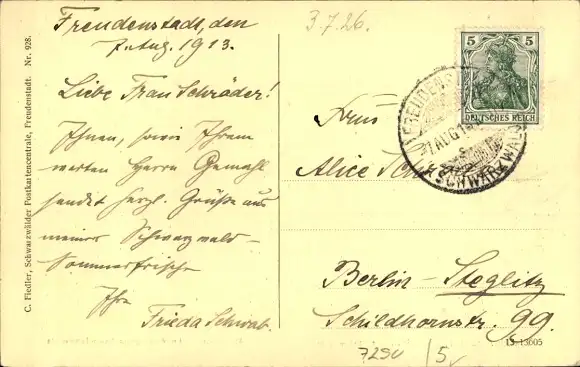 C. Fiedler, Schwarzwälder Postkartencentrale, Freudenstadt. Nr. 928.
Freudenstadt, den
7. Aug. 1913.
Liebe Frau Schröder!
Ihnen, sowie Ihrem
werten Herrn Gemahl
sendet herzl. Grüße aus
meiner Schwarzwald-
Sommerfrische
Ihre
Frieda Schwab.
3.7.26.
5 5
DEUTSCHES REICH
FREUDENS
7 AUG 1
SCHWARZWALD
Frau
Alice
Berlin-Steglitz
Schildhornstr. 99.
7290
5
13605